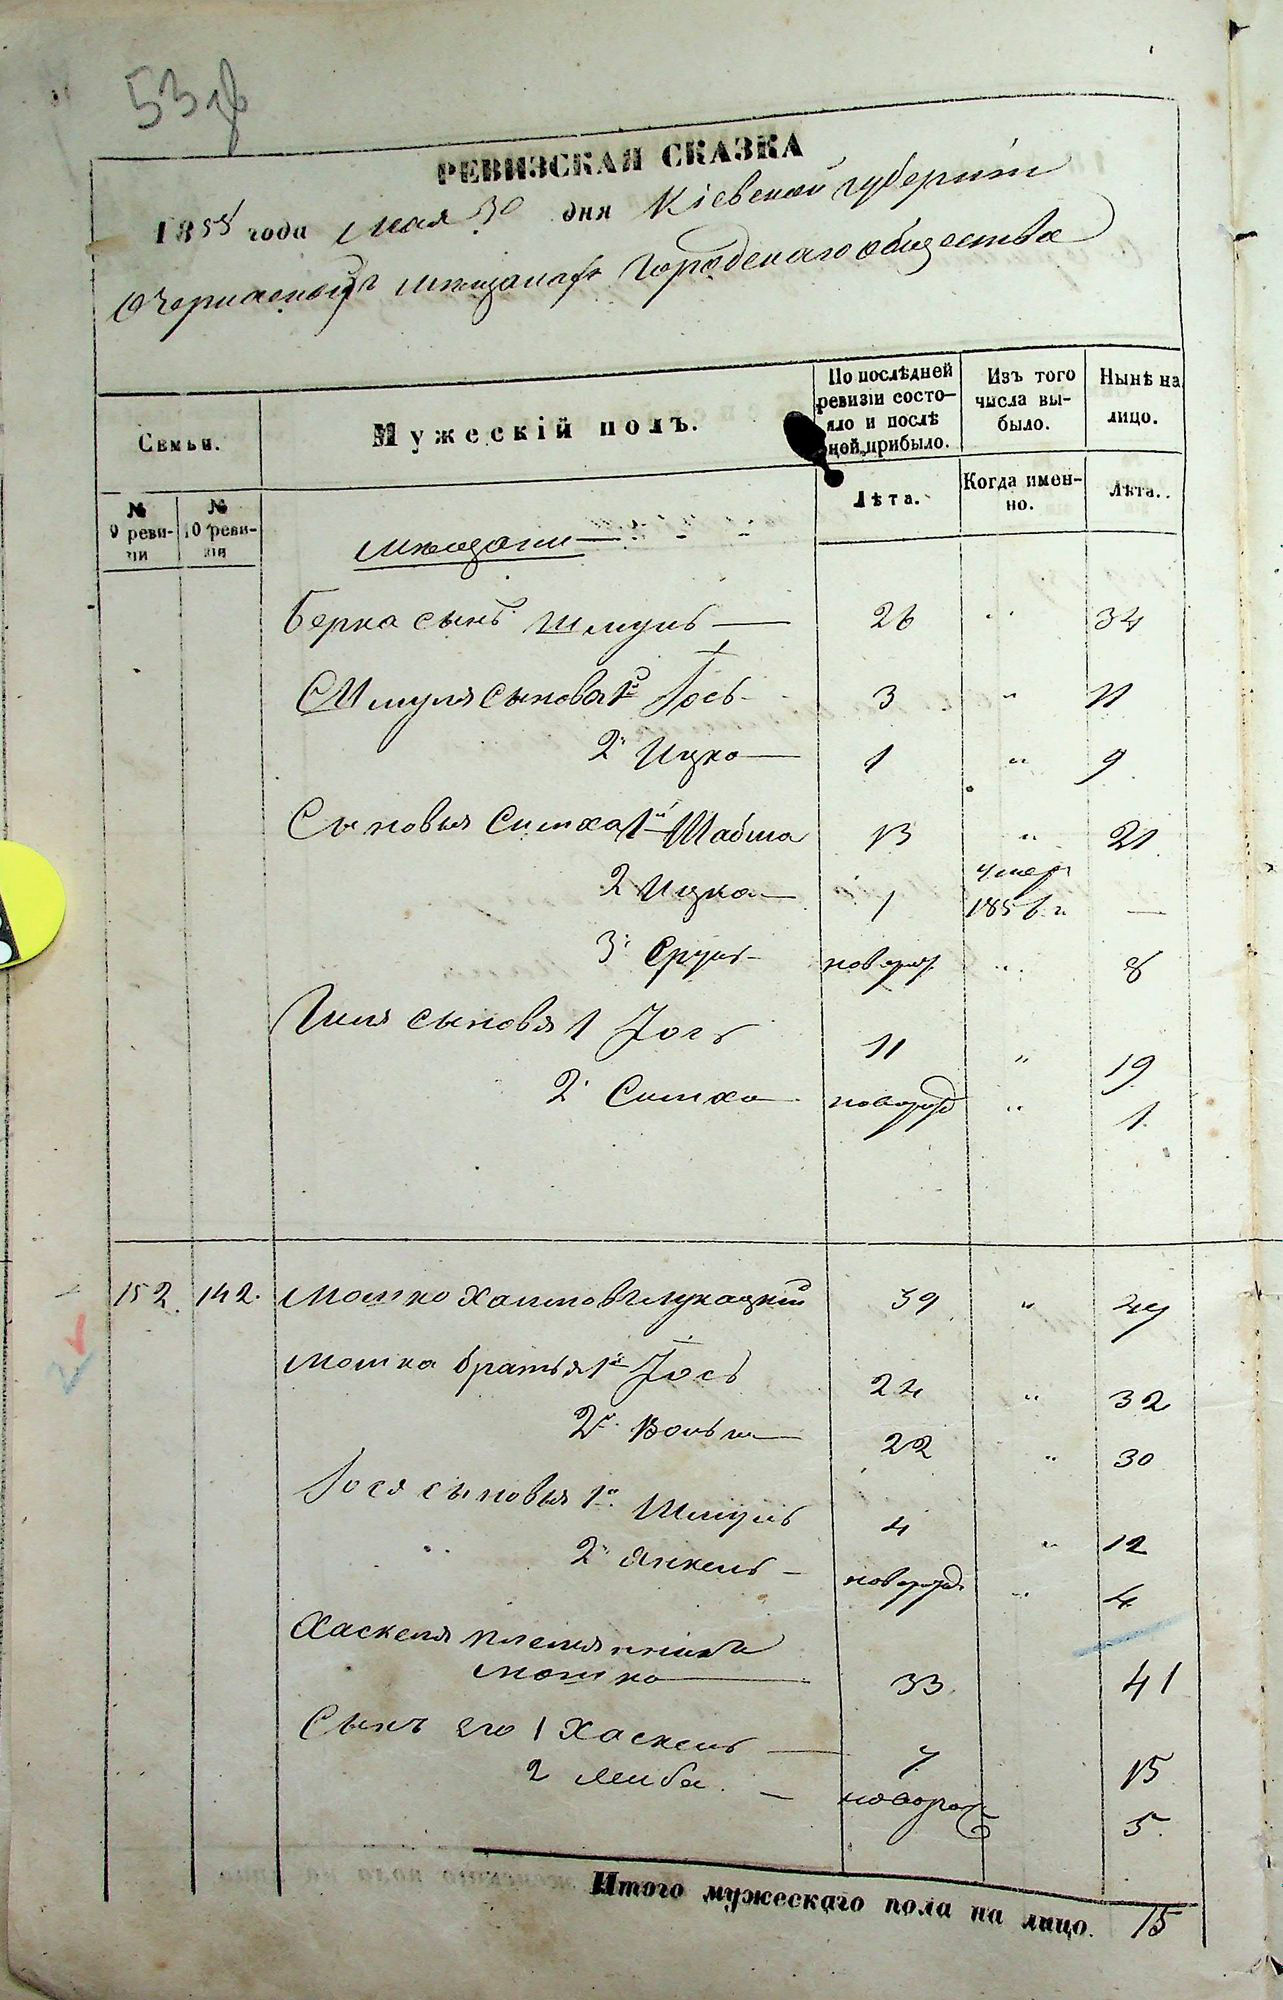 53
РЕВИЗСКАЯ СКАЗКА
1858 года Мая 30 дня Кіевской губерніи
О Черкаскихъ мѣщанахъ Городскаго общества
Семьи.
Мужескій полъ.
По послѣдней ревизіи состояло и послѣ оной прибыло.
Изъ того числа выбыло.
Нынѣ на лицо.
№ 9 ревизіи
№ 10 ревизіи
Лѣта.
Когда именно.
Лѣта.
мѣщане
Берка сынъ Шмуль — 26 " 34
Шмуля сыновья 1й Іось 3 " 11
2й Ицко — 1 " 9
Сыновья Симха 1й Шабша 13 " 21
2 Ицко — 1 умер 185 г. —
3й Сруль новорож " 8
Гиля сыновья 1 Іось 11 " 19
2й Симха новорожд " 1
152. 142. Мошко Хаимов 39 " 47
Мошка братья 1й Іось 24 " 32
2й Вольк — 22 " 30
Іося сыновья 1й Шмуль 4 " 12
2й Янкель — новорожд. " 4
Хаскеля племянника
Мошко — 33 41
Сынъ его 1 Хаскель — 7 15
2 Лейба — новорож 5.
Итого мужескаго пола на лицо. 15